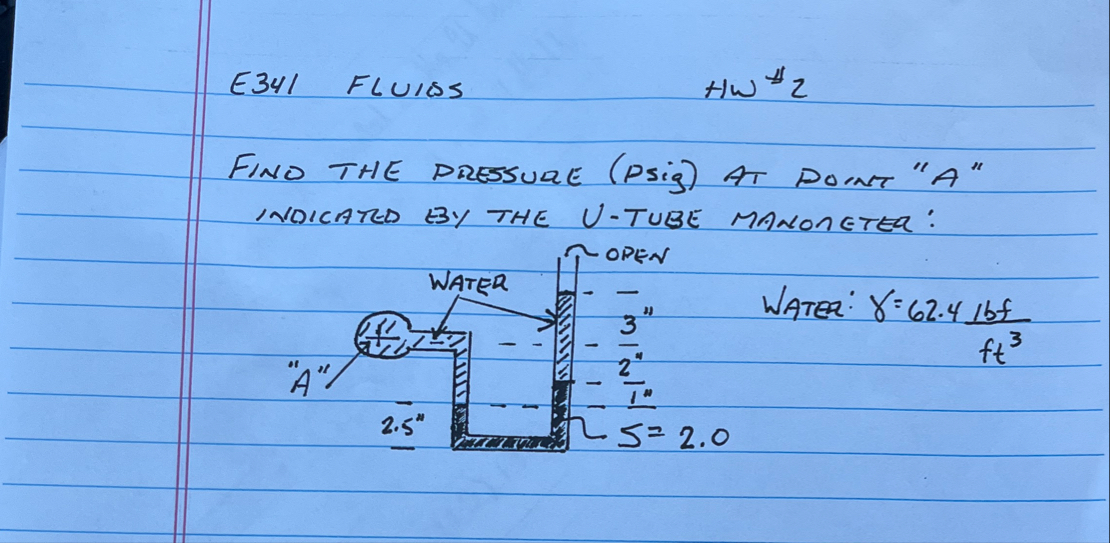 E341 FLUIDS HW #2
FIND THE PRESSURE (psig) AT POINT "A"
INDICATED BY THE U-TUBE MANOMETER:
OPEN
WATER
WATER: γ=62.4 lbf/ft³
3"
"A"
2"
1"
2.5"
S= 2.0